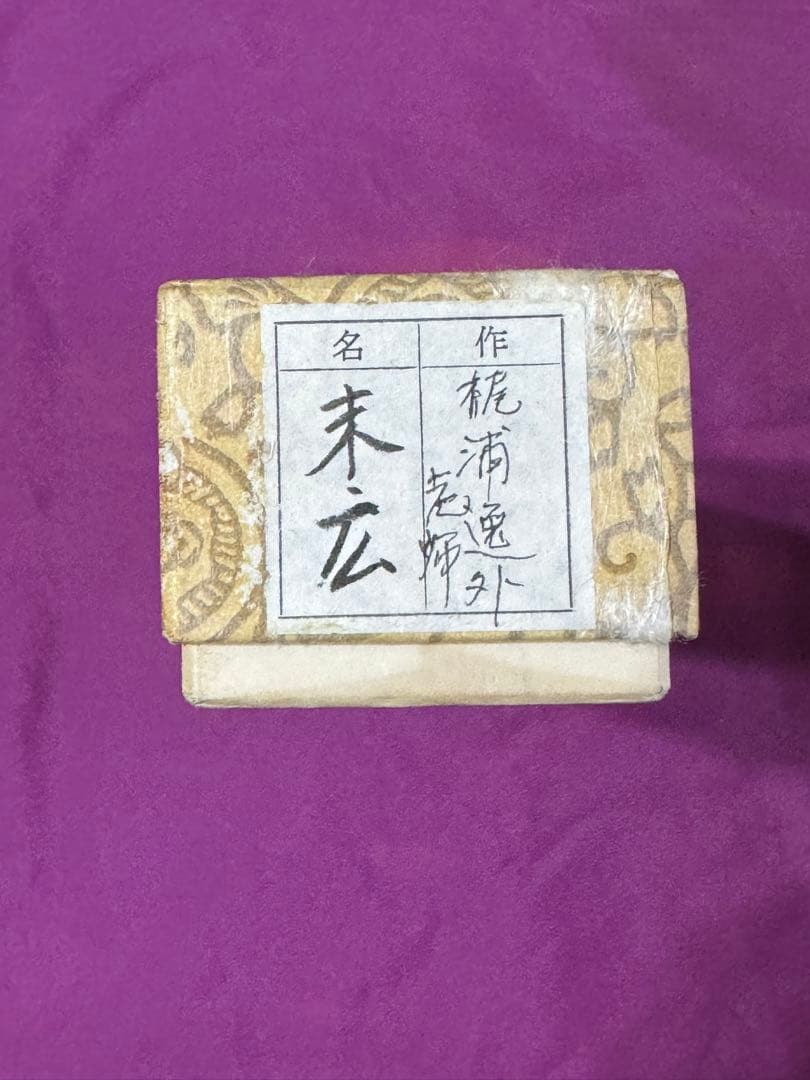 作
梶浦逸外
老師
名
末広